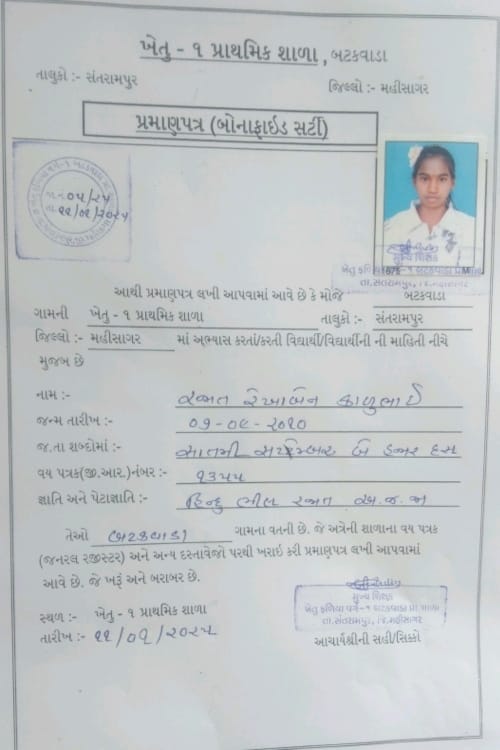 ખેતુ - ૧ પ્રાથમિક શાળા, બટકવાડા
તાલુકો :- સંતરામપુર જિલ્લો :- મહીસાગર
પ્રમાણપત્ર (બોનાફાઇડ સર્ટી)
જા.નં. ૦૫/૨૫
તા. ૨૨/૦૧/૨૦૨૫
મુખ્ય શિક્ષક
ખેતુ ફળિયા વર્ગ-૧ બટકવાડા પ્રા.
તા.સંતરામપુર, જિ.મહીસાગર
આથી પ્રમાણપત્ર લખી આપવામાં આવે છે કે મોજે બટકવાડા
ગામની ખેતુ - ૧ પ્રાથમિક શાળા તાલુકો :- સંતરામપુર
જિલ્લો :- મહીસાગર માં અભ્યાસ કરતાં/કરતી વિદ્યાર્થી/વિદ્યાર્થીની ની માહિતી નીચે
મુજબ છે
નામ :- રજાત રેખાબેન કાળુભાઈ
જન્મ તારીખ :- ૦૭-૦૯-૨૦૧૦
જ.તા શબ્દોમાં :- સાતમી સપ્ટેમ્બર બે હજાર દસ
વય પત્રક(જી.આર.)નંબર :- ૧૩૫૫
જ્ઞાતિ અને પેટાજ્ઞાતિ :- હિન્દુ ભીલ રજાત અ.જ.જા
તેઓ બટકવાડા ગામના વતની છે. જે અત્રેની શાળાના વય પત્રક
(જનરલ રજીસ્ટર) અને અન્ય દસ્તાવેજો પરથી ખરાઇ કરી પ્રમાણપત્ર લખી આપવામાં
આવે છે. જે ખરૂં અને બરાબર છે.
સ્થળ :- ખેતુ - ૧ પ્રાથમિક શાળા
તારીખ :- ૨૨/૦૧/૨૦૨૫
મુખ્ય શિક્ષક
ખેતુ ફળિયા વર્ગ-૧ બટકવાડા પ્રા.શાળા
તા.સંતરામપુર, જિ.મહીસાગર
આચાર્યશ્રીની સહી/સિક્કો